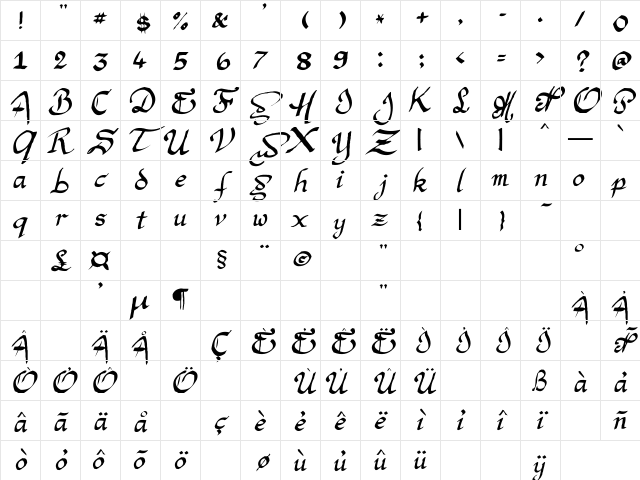 ! " # $ % & ' ( ) * + , - . / 0
1 2 3 4 5 6 7 8 9 : ; < = > ? @
A B C D E F G H I J K L M N O P
Q R S T U V W X Y Z [ \ ] ^ — `
a b c d e f g h i j k l m n o p
q r s t u v w x y z { | } ~
£ ¤ § ¨ © " °
' µ ¶ " À Á
 Ä Å Ç È É Ê Ë Ì Í Î Ï Ñ
Ò Ó Ô Ö Ù Ú Û Ü ß à á
â ã ä å ç è é ê ë ì í î ï ñ
ò ó ô õ ö ø ù ú û ü ÿ